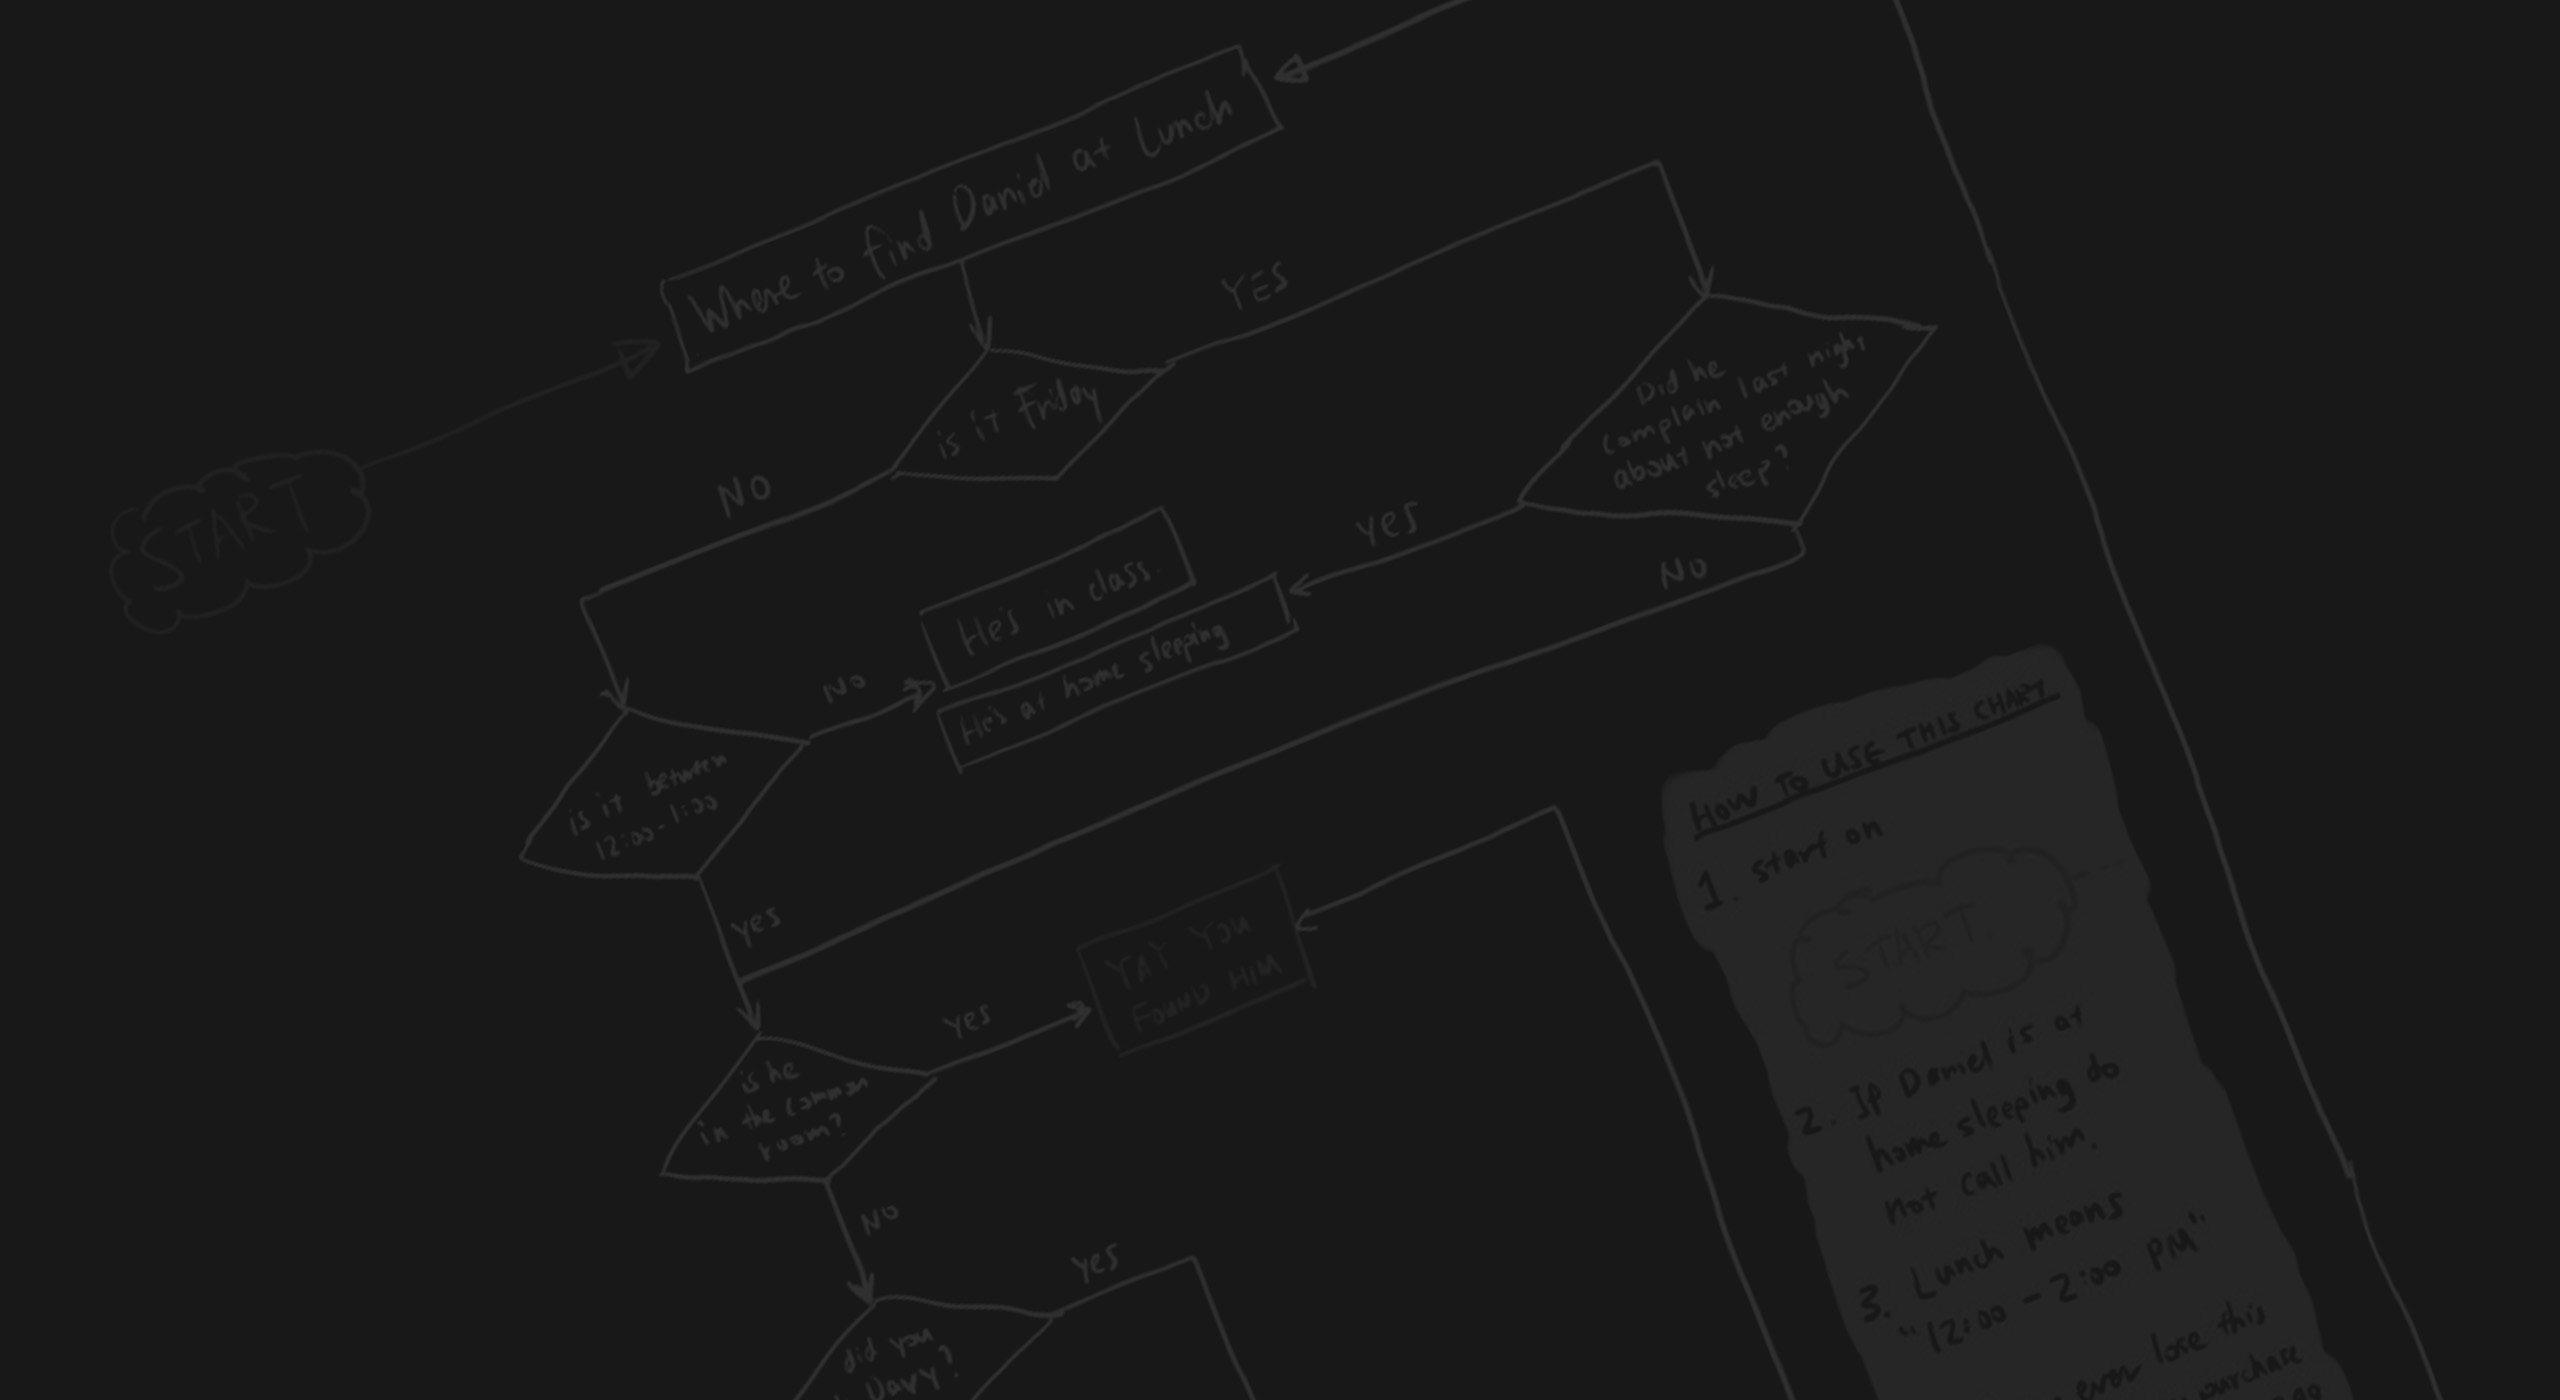 START
Where to find Daniel at Lunch
is it Friday
YES
NO
Did he
complain last night
about not enough
sleep?
yes
No
He's in class.
He's at home sleeping
is it between
12:00-1:00
No
yes
is he
in the common
room?
yes
YAY YOU
FOUND HIM
No
did you
Davy?
yes
HOW TO USE THIS CHART
1. start on
START
2. If Daniel is at
home sleeping do
not call him.
3. Lunch means
"12:00 - 2:00 PM"
ever lose this
purchase